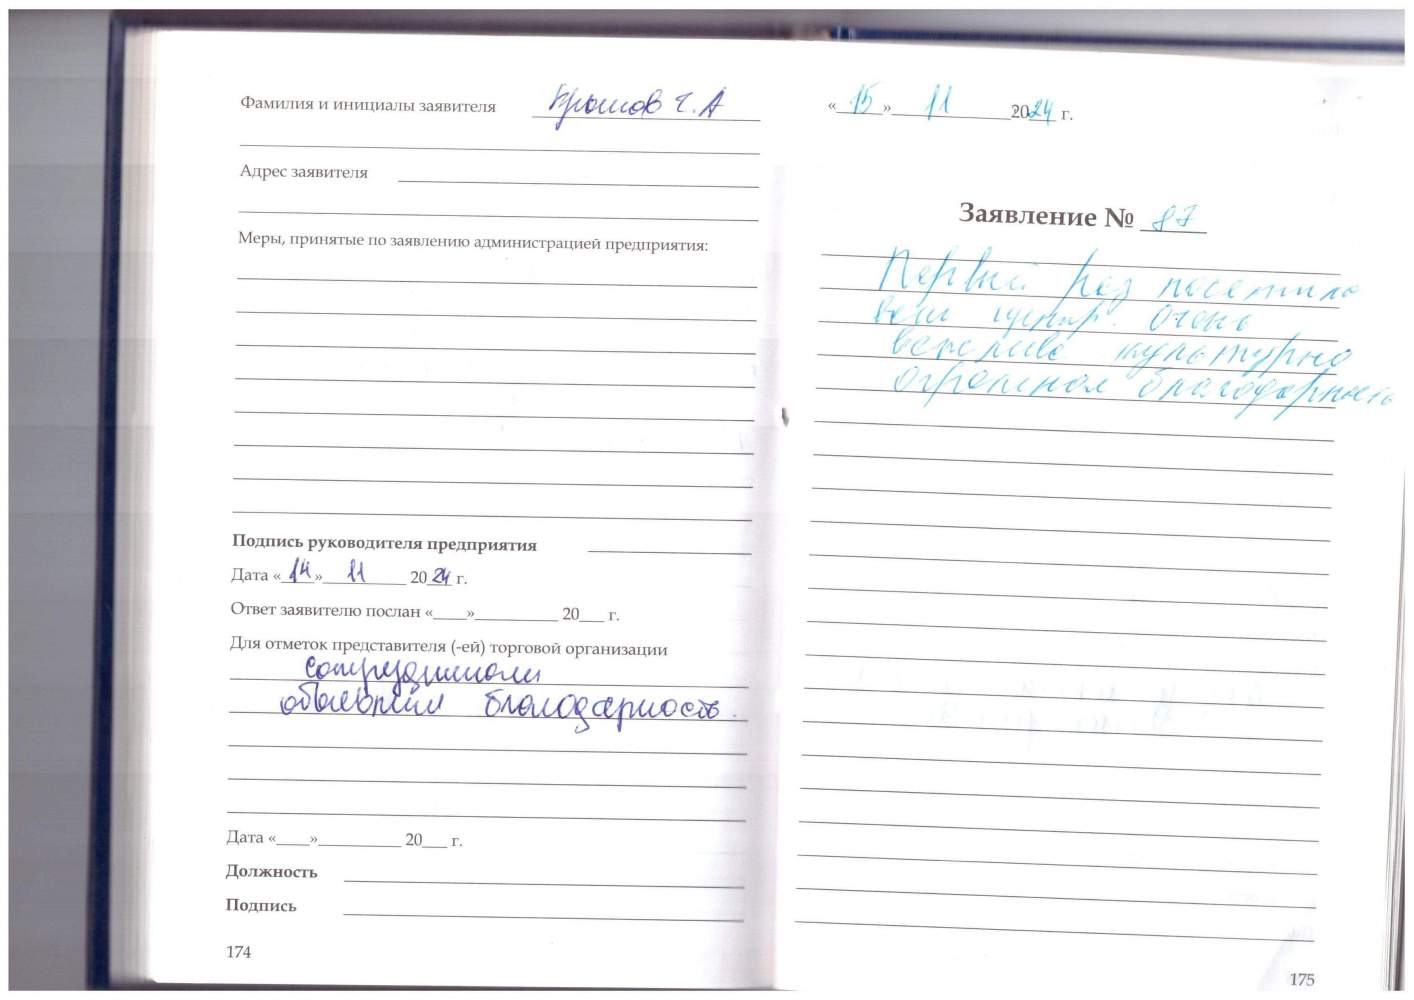 Фамилия и инициалы заявителя
Адрес заявителя
Меры, принятые по заявлению администрацией предприятия:
Подпись руководителя предприятия
Дата «14» 11 2024 г.
Ответ заявителю послан «____»__________ 20___ г.
Для отметок представителя (-ей) торговой организации
объявлена благодарность.
Дата «____»__________ 20___ г.
Должность
Подпись
174
«15» 11 2024 г.
Заявление № 87
Первый раз посетила
ваш центр. Очень
вежливо культурно
огромная благодарность
175